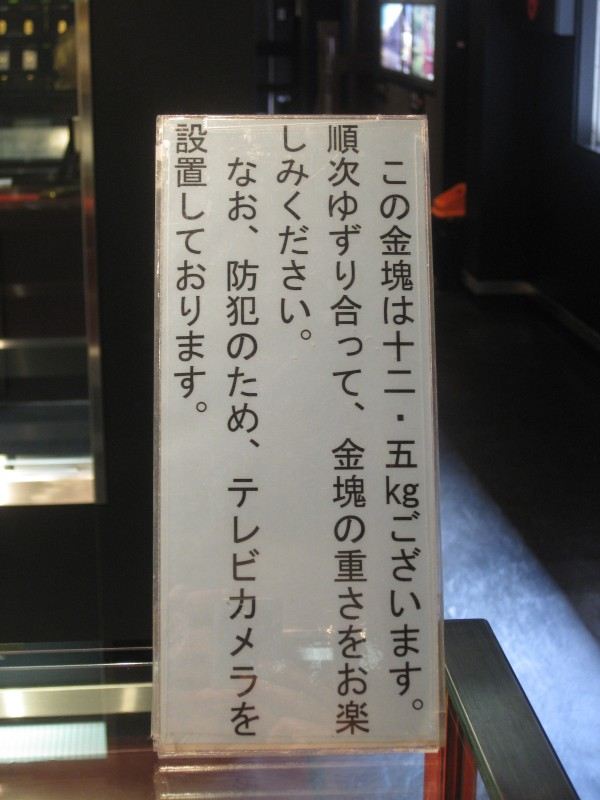 この金塊は十二・五kgございます。
順次ゆずり合って、金塊の重さをお楽
しみください。
なお、防犯のため、テレビカメラを
設置しております。